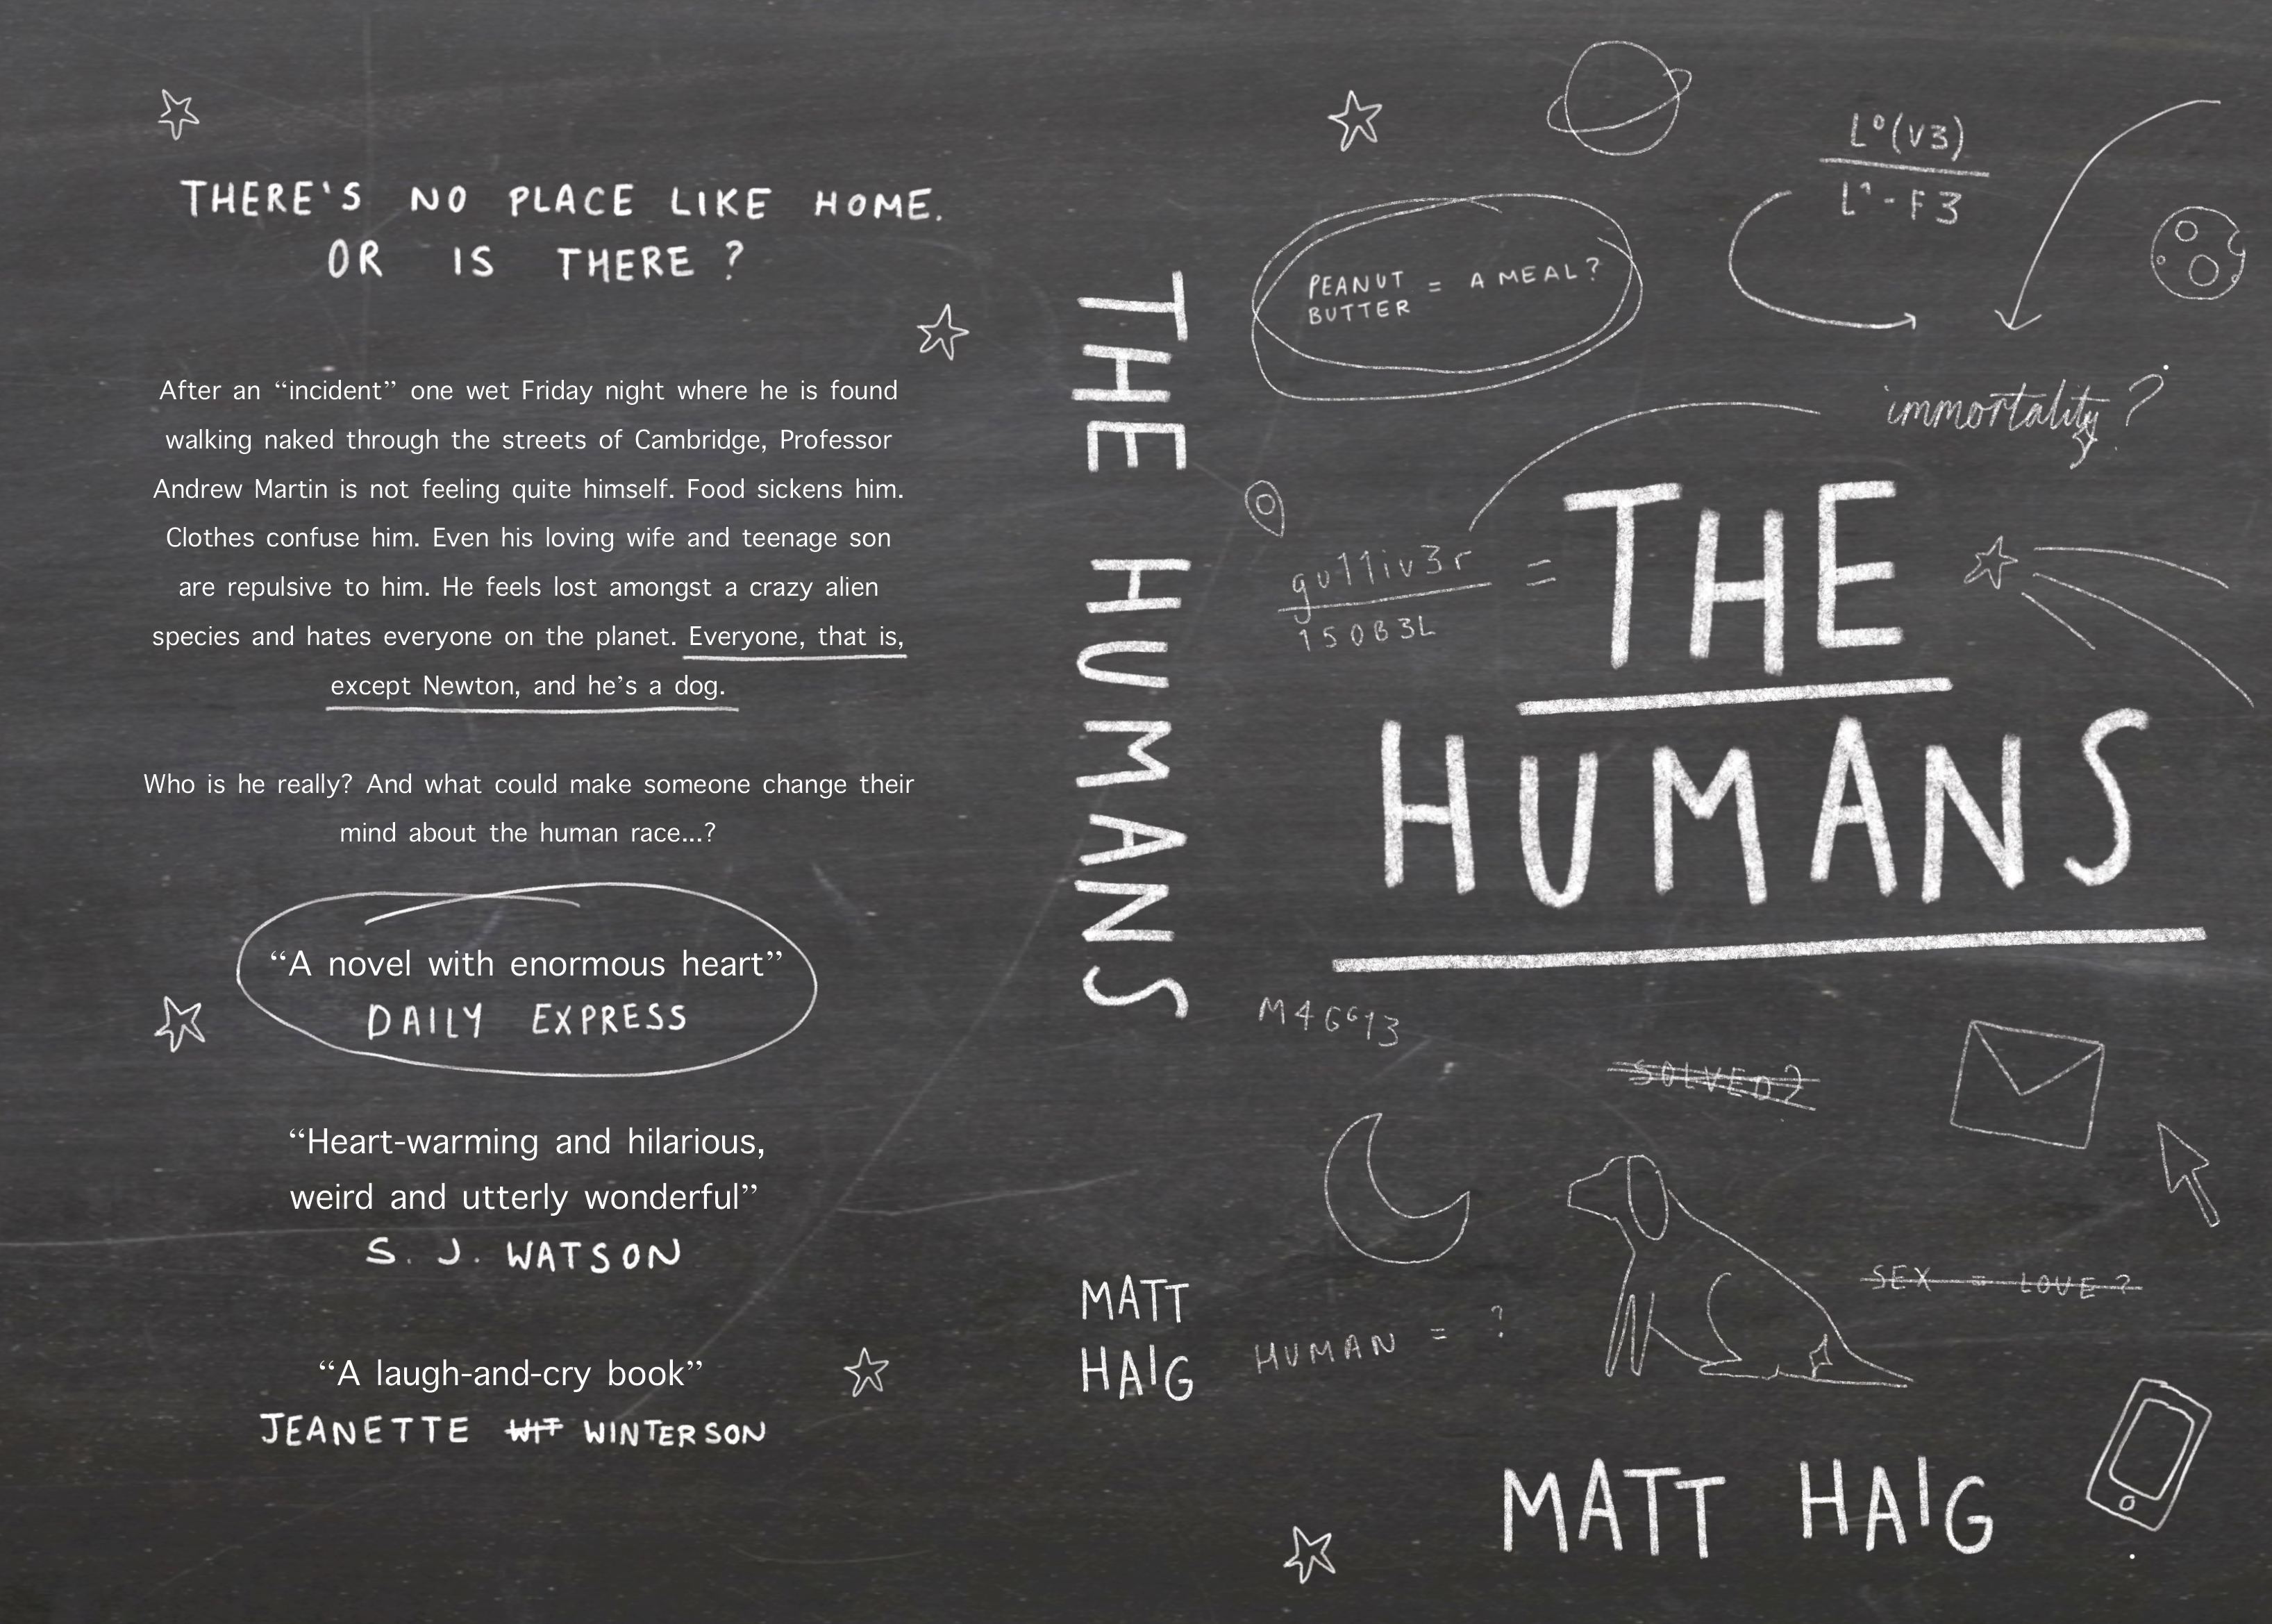 THERE'S NO PLACE LIKE HOME.
OR IS THERE?
After an “incident” one wet Friday night where he is found
walking naked through the streets of Cambridge, Professor
Andrew Martin is not feeling quite himself. Food sickens him.
Clothes confuse him. Even his loving wife and teenage son
are repulsive to him. He feels lost amongst a crazy alien
species and hates everyone on the planet. Everyone, that is,
except Newton, and he’s a dog.
Who is he really? And what could make someone change their
mind about the human race...?
“A novel with enormous heart”
DAILY EXPRESS
“Heart-warming and hilarious,
weird and utterly wonderful”
S. J. WATSON
“A laugh-and-cry book”
JEANETTE WIT WINTERSON
THE HUMANS
MATT
HAIG
L⁰(V3)
L¹-F3
PEANUT
BUTTER = A MEAL?
immortality?
gu11iv3r =
150B3L
THE
HUMANS
M4GG13
SOLVED?
SEX = LOVE?
HUMAN = ?
MATT HAIG